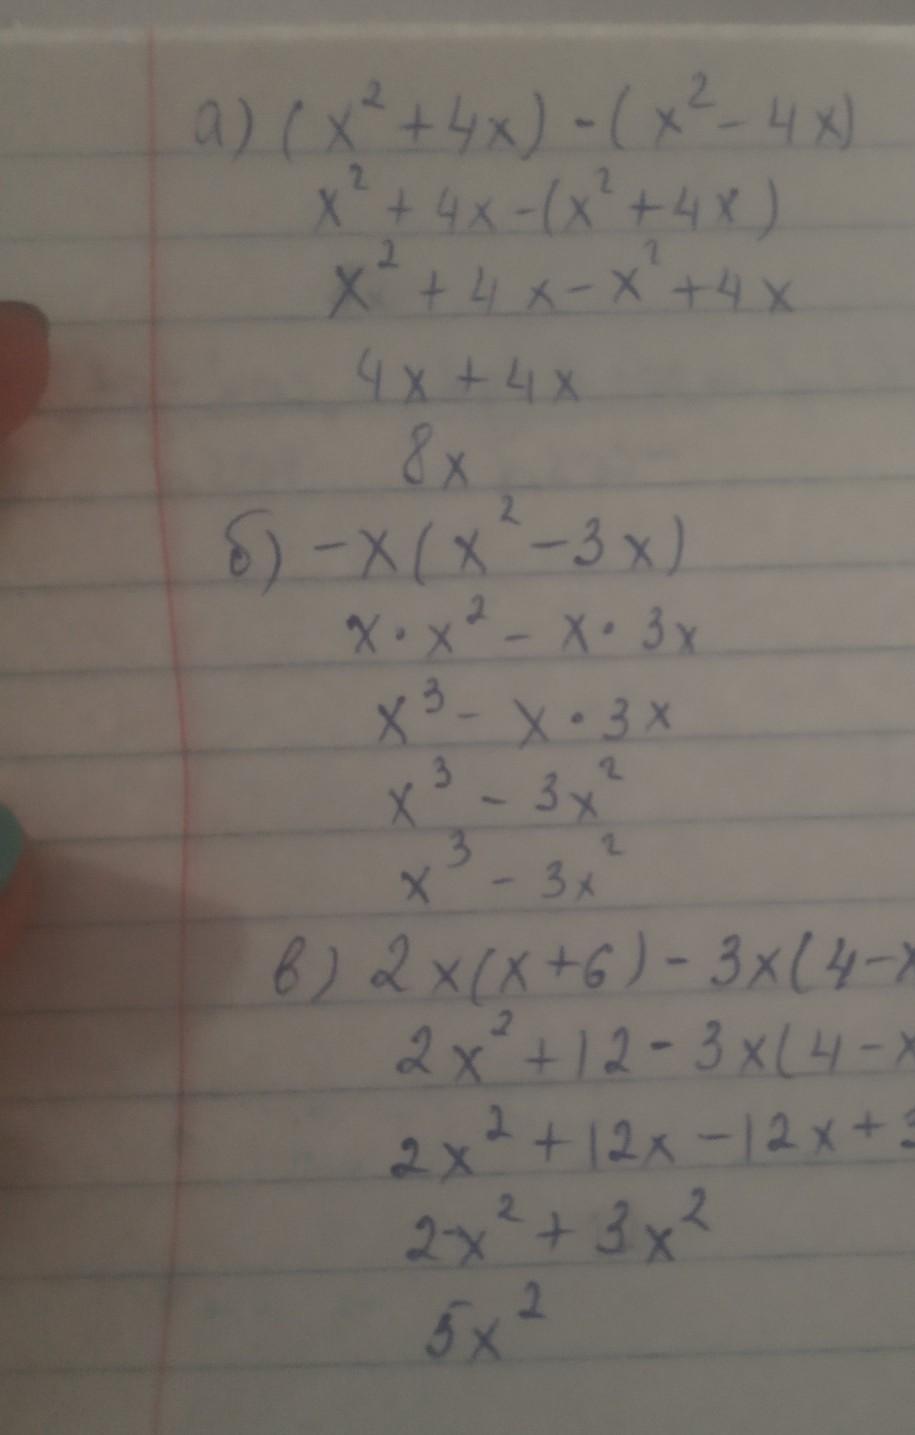 а) (x² + 4x) - (x² - 4x)
x² + 4x - (x² + 4x)
x² + 4x - x² + 4x
4x + 4x
8x
б) -x(x² - 3x)
x · x² - x · 3x
x³ - x · 3x
x³ - 3x²
x³ - 3x²
в) 2x(x+6) - 3x(4-x
2x² + 12 - 3x(4-x
2x² + 12x - 12x + 3
2x² + 3x²
5x²